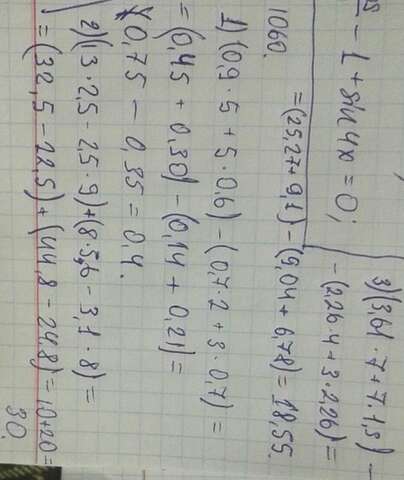 - 1 + sin 4x = 0;
1060.
1) (0,9·5 + 5·0,6) - (0,7·2 + 3·0,7) =
= (0,45 + 0,30) - (0,14 + 0,21) =
0,75 - 0,35 = 0,4.
2) (13·2,5 - 2,5·9) + (8·5,6 - 3,1·8) =
= (32,5 - 22,5) + (44,8 - 24,8) = 10 + 20 =
30.
3) (3,61·7 + 7·1,3) -
- (2,26·4 + 3·2,26) =
= (25,27 + 9,1) - (9,04 + 6,78) = 18,55.